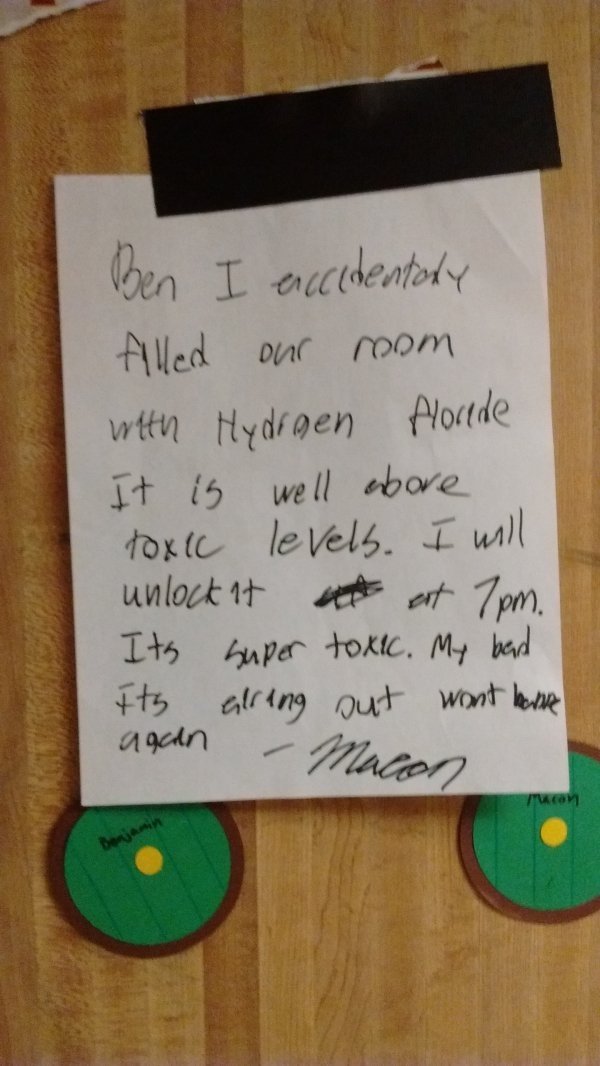 Ben I accidentaly
filled our room
with Hydrogen floride
It is well above
toxic levels. I will
unlock it at 7pm.
Its super toxic. My bad
Its airing out wont
again - Macon
Benjamin
Macon